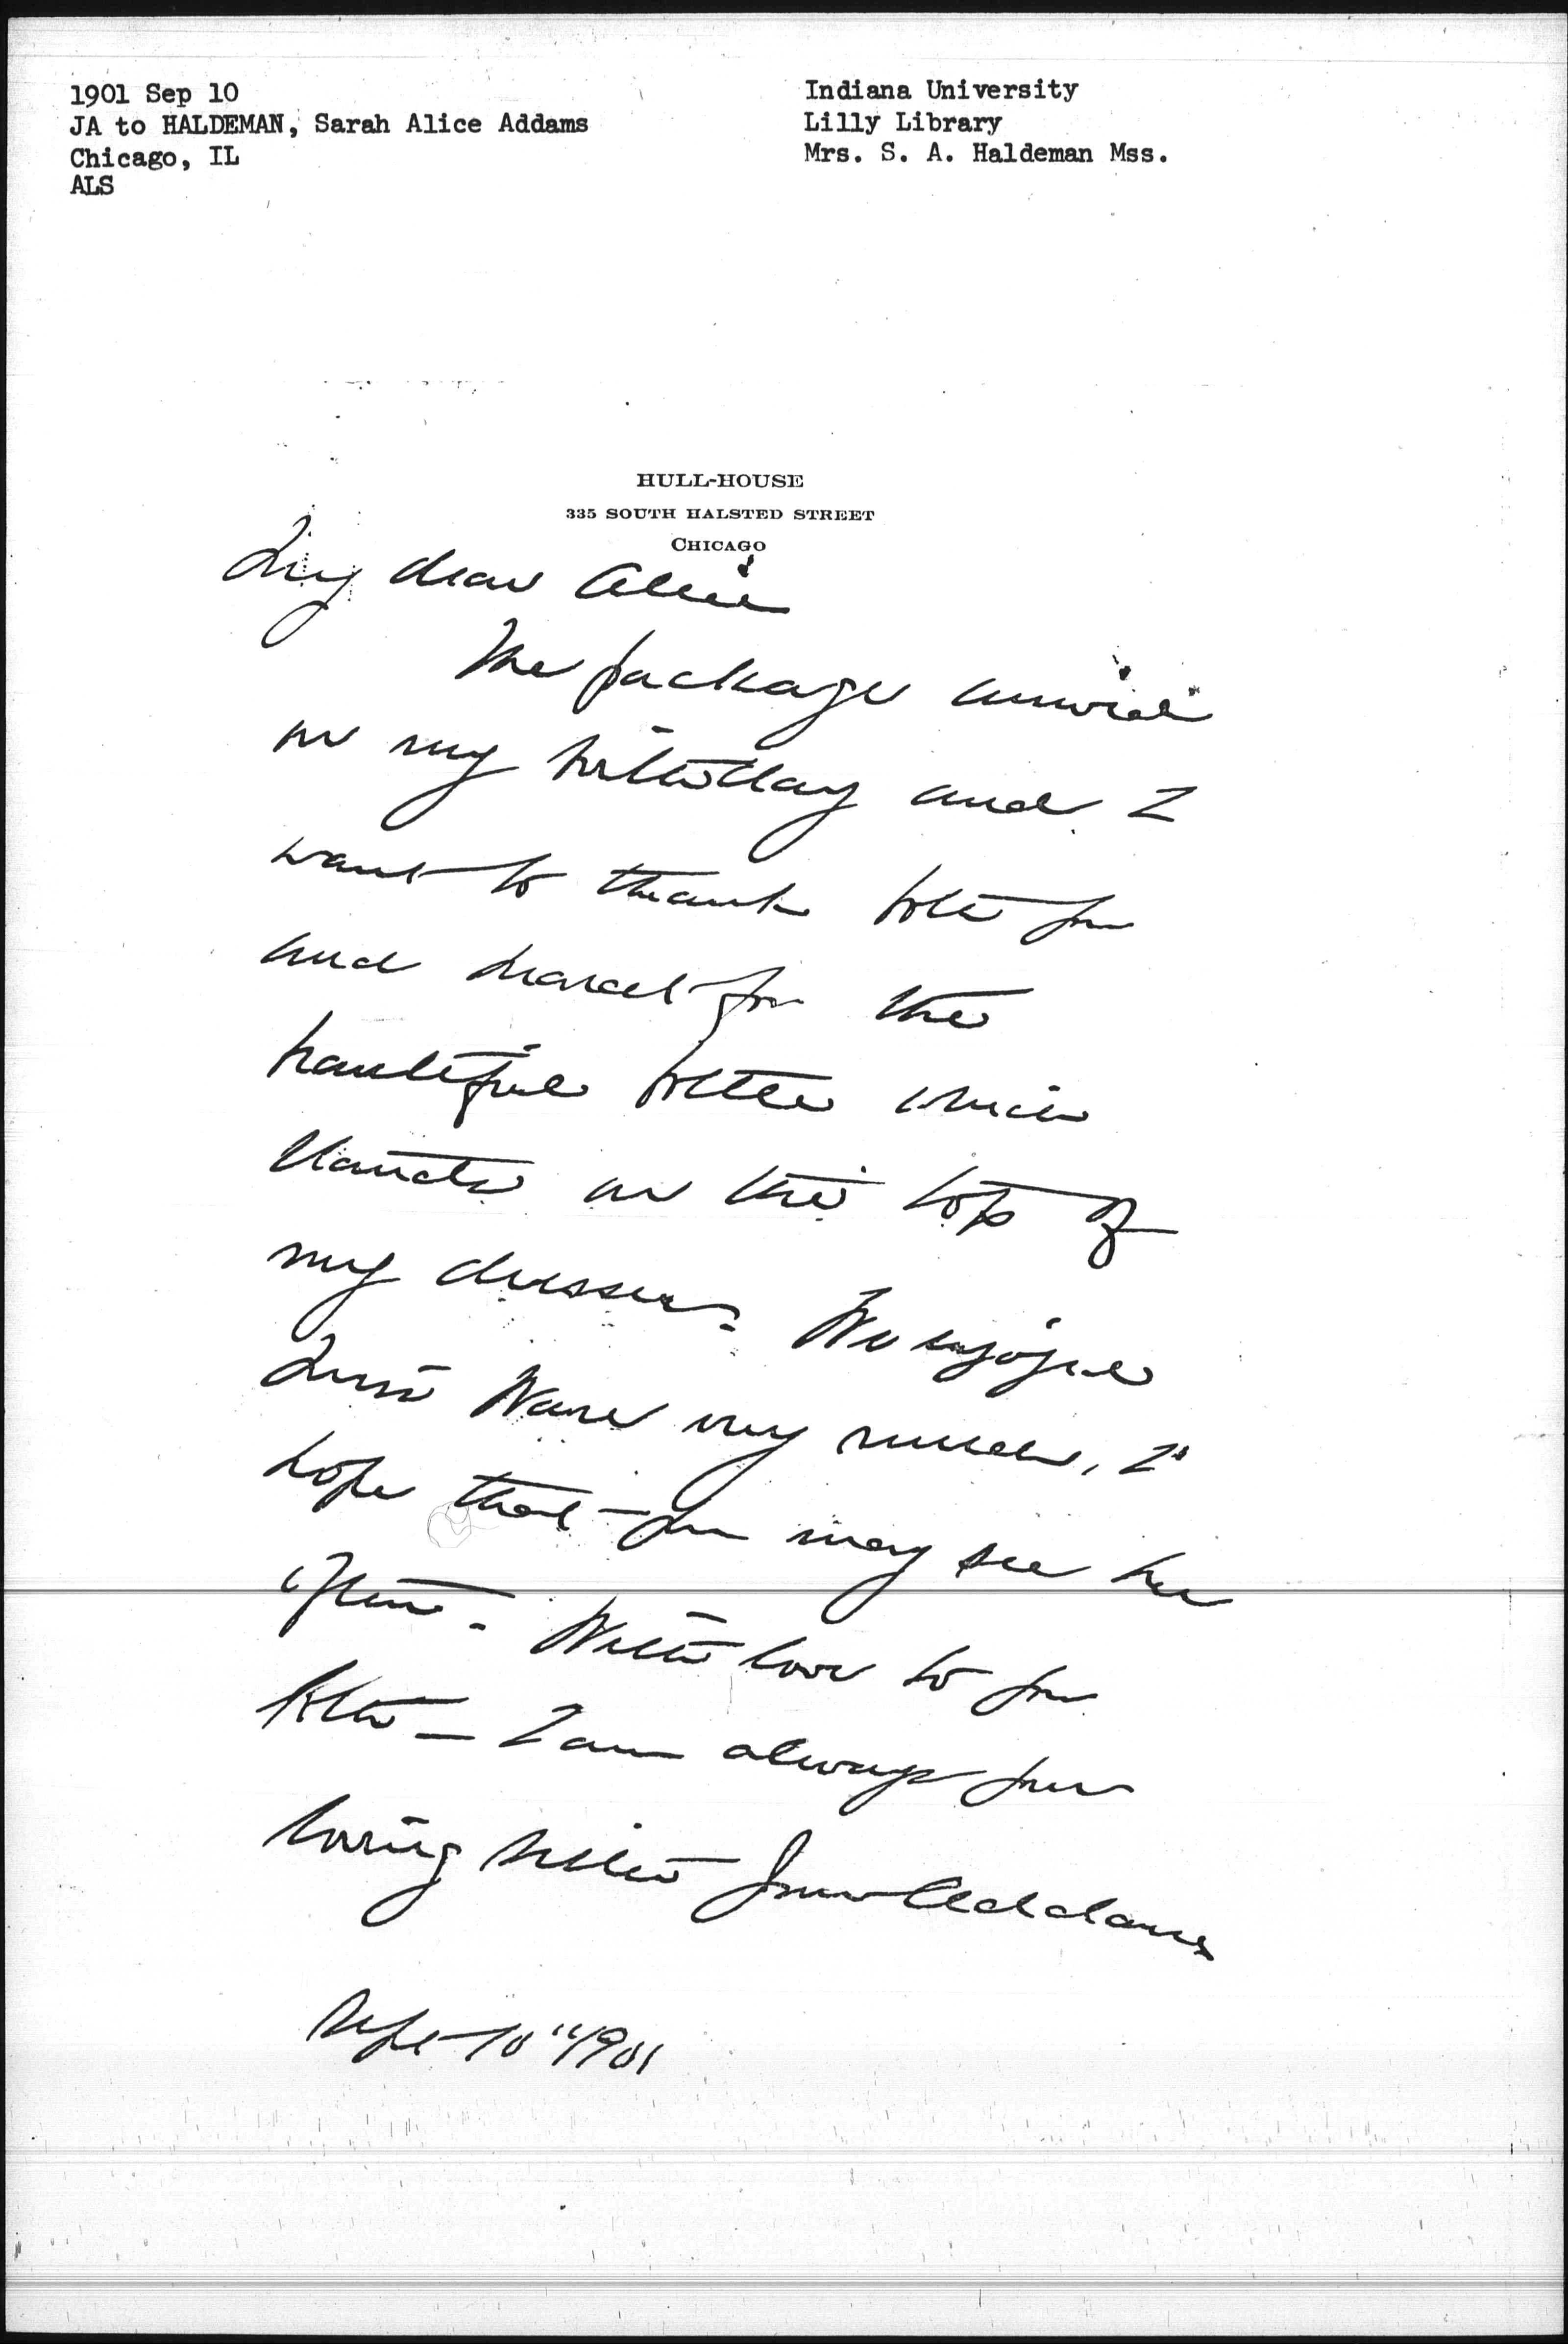 1901 Sep 10
JA to HALDEMAN, Sarah Alice Addams
Chicago, IL
ALS
Indiana University
Lilly Library
Mrs. S. A. Haldeman Mss.
HULL-HOUSE
335 SOUTH HALSTED STREET
CHICAGO
My dear Alice
The package arrived
on my birthday and I
want to thank both you
and Marcet for the
beautiful bottle which
stands on the top of
my dresser. We enjoyed
Miss Ware very much, I
hope that you may see her
often. With love to you
both — I am always your
loving sister Jane Addams
Sept 10" 1901